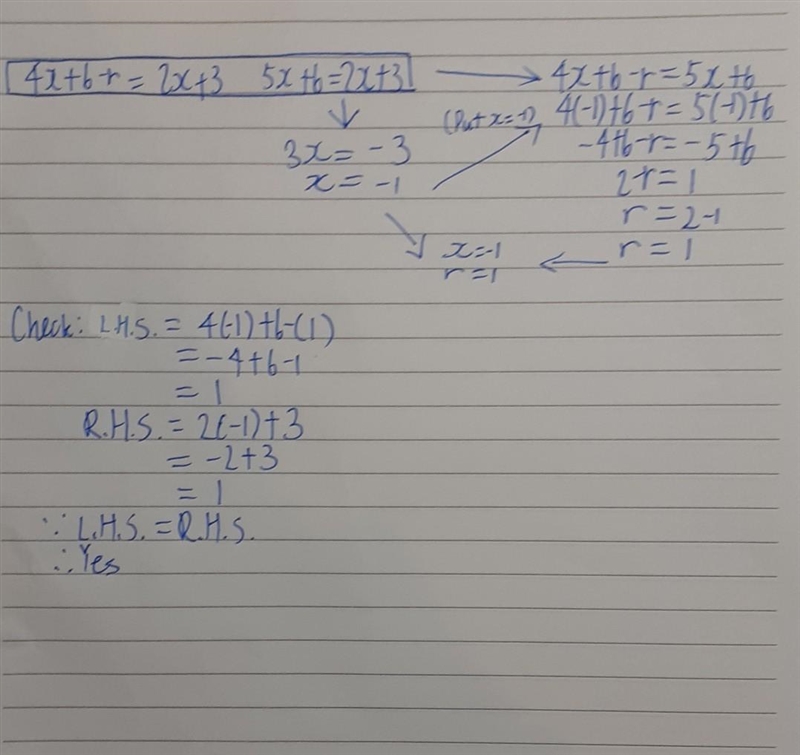 4x+6-r = 2x+3 5x+6=2x+3 → 4x+6-r=5x+6
↓ (Put x=-1) 4(-1)+6-r=5(-1)+6
3x = -3 -4+6-r=-5+6
x = -1 2-r=1
r=2-1
x=-1 ← r=1
r=1
Check: L.H.S. = 4(-1)+6-(1)
= -4+6-1
= 1
R.H.S. = 2(-1)+3
= -2+3
= 1
∵ L.H.S. = R.H.S.
∴ Yes